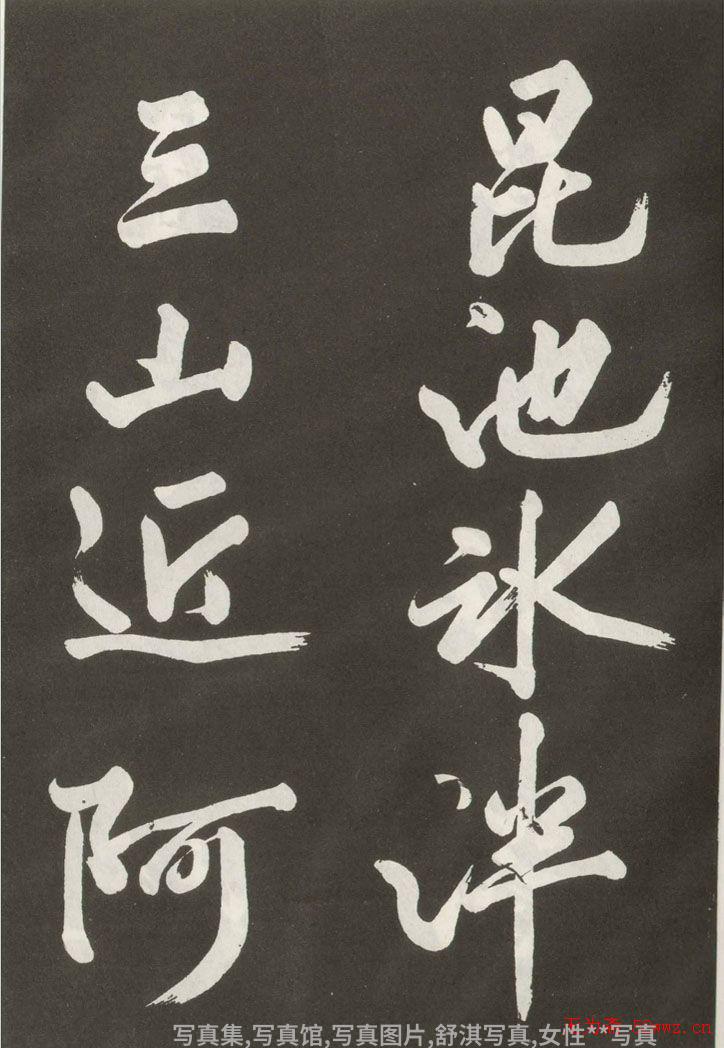 昆池氷泮
三山近阿
写真集,写真馆,写真图片,舒淇写真,女性**写真